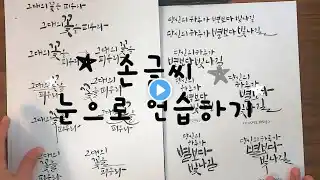 그대의 꽃을 피우리
그대의 꽃을 피우리
그대의 꽃을 피우리
그대의 꽃을 피우리
그대의
꽃을
피우리
그대의
꽃을
피우리
당신의 하루가 별보다 빛나길
당신의 하루가
별보다 빛나길
당신의 하루가
별보다 빛나길
당신의
하루가
별보다
빛나길
당신의
하루가
별보다
빛나길
손글씨
눈으로 연습하기